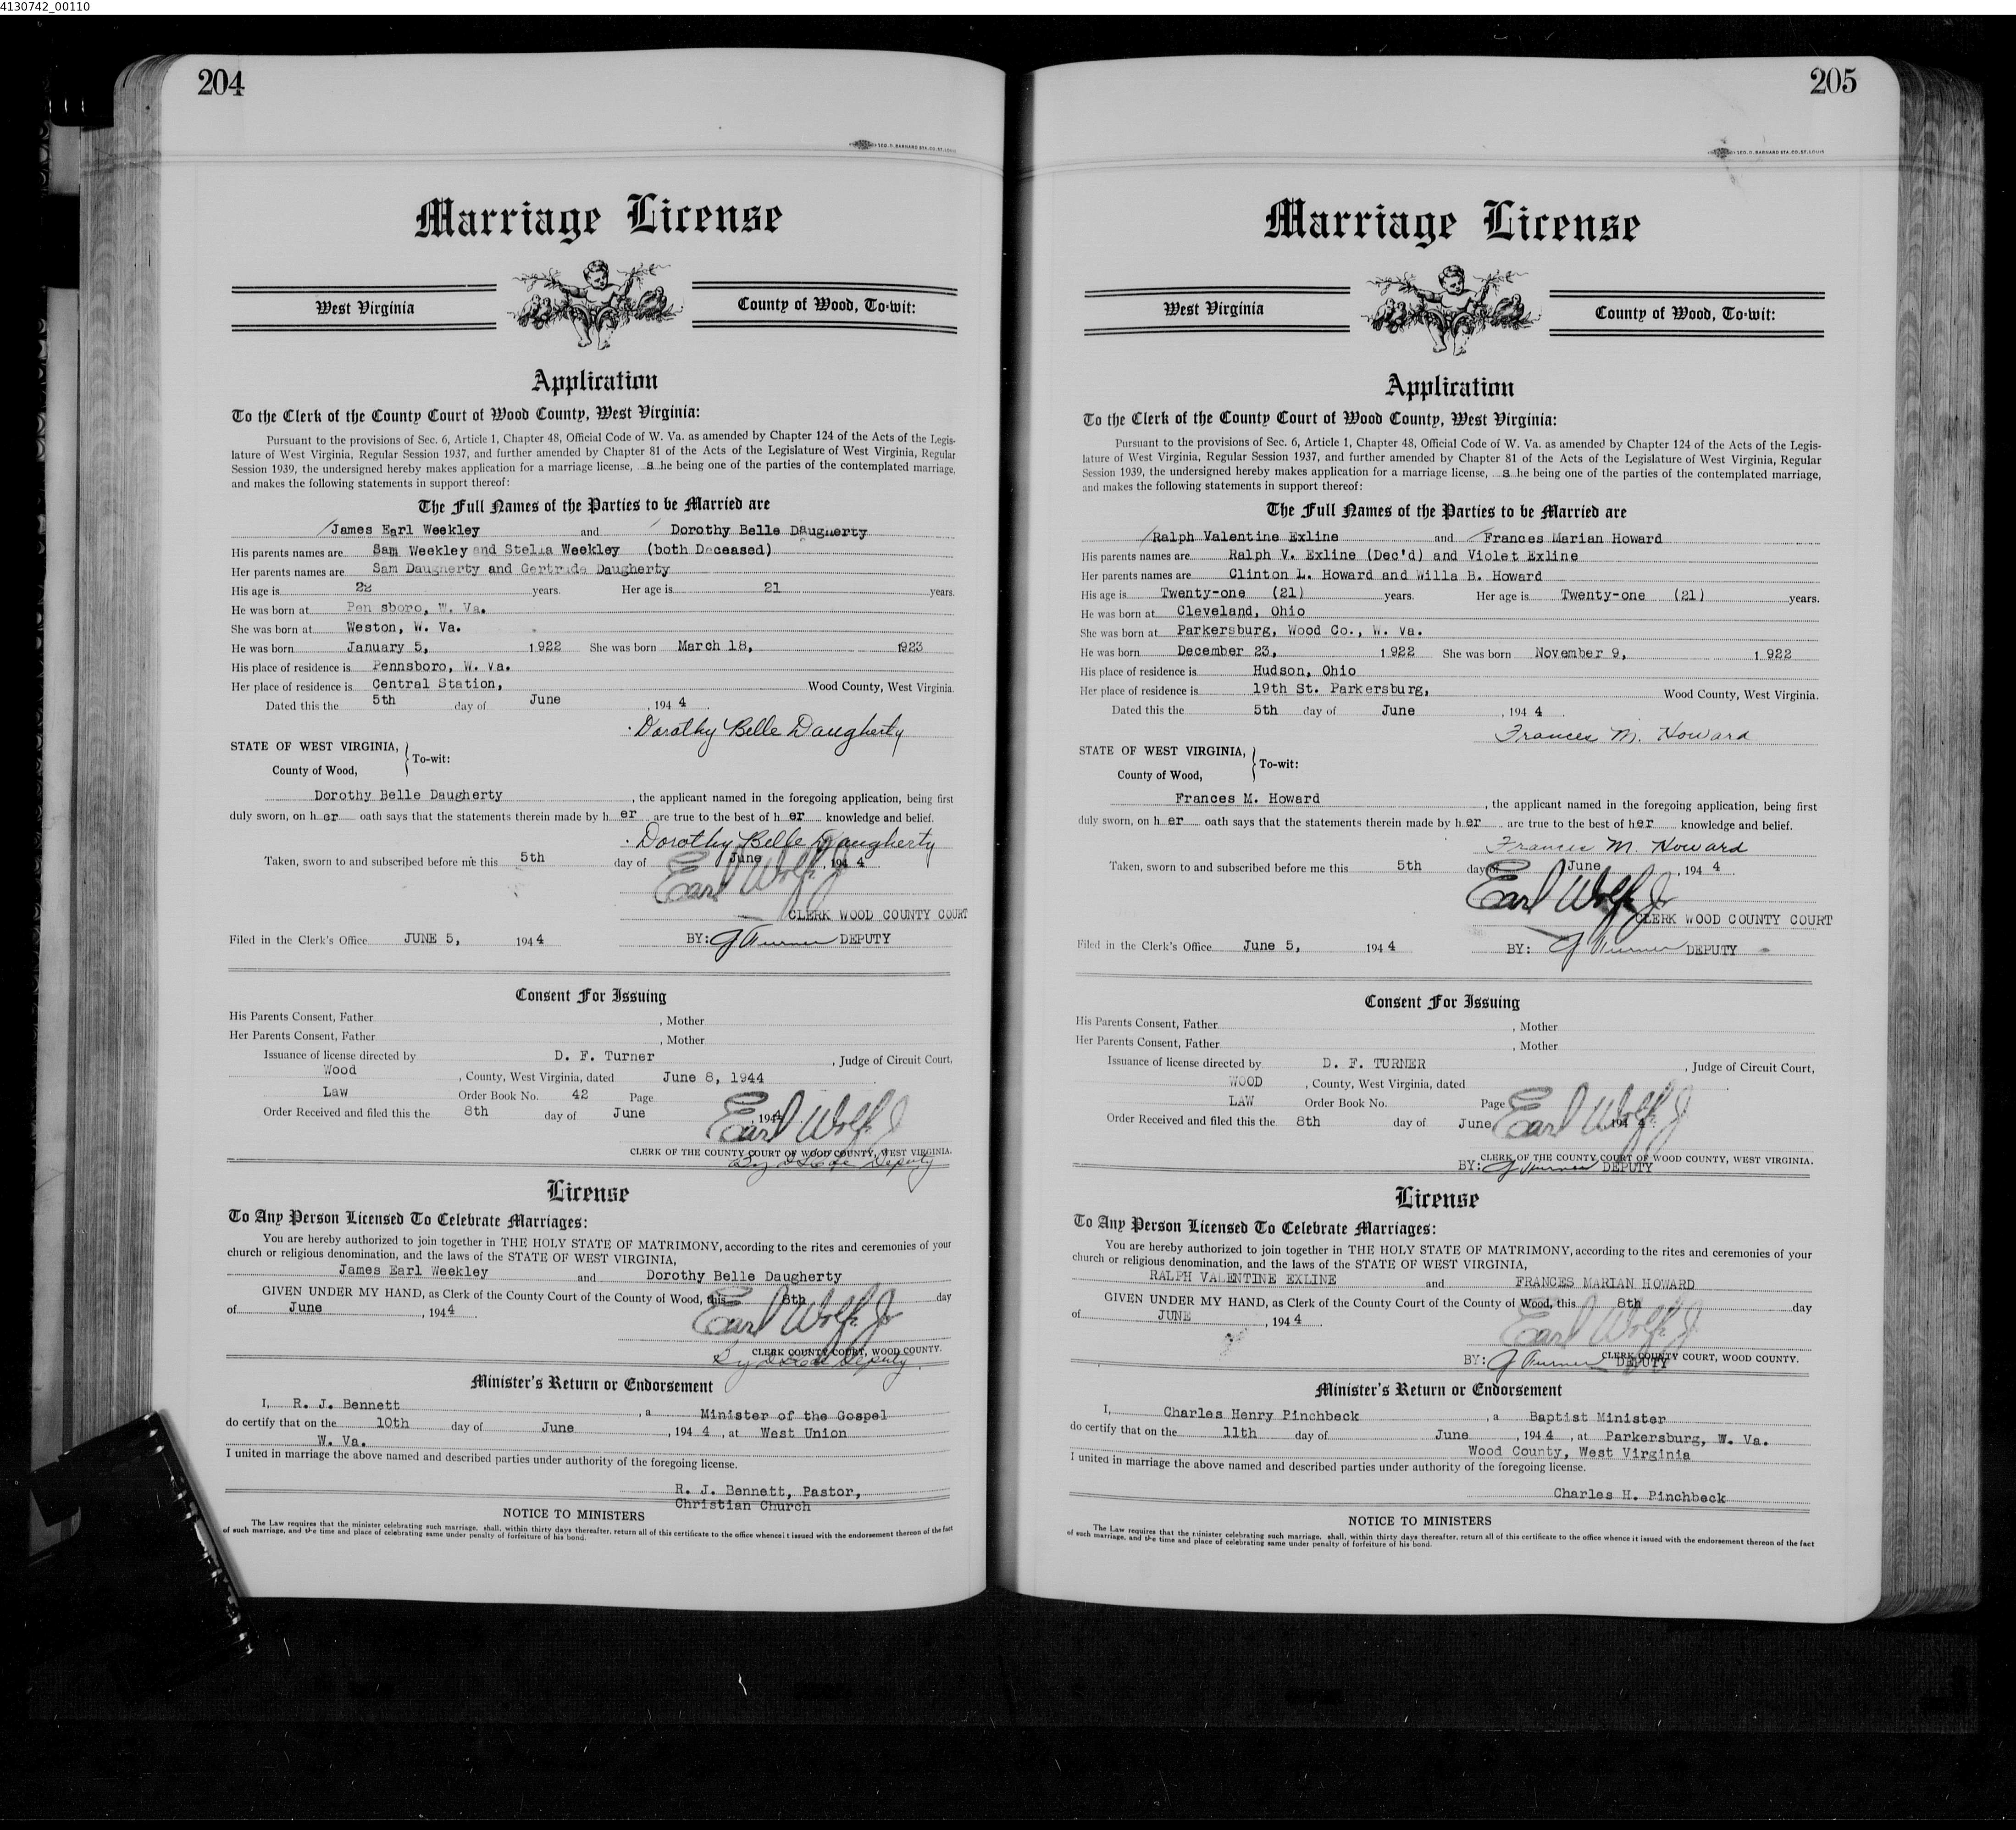 4130742_00110
204
GEO. D. BARNARD STA. CO. ST. LOUIS
Marriage License
West Virginia
County of Wood, To-wit:
Application
To the Clerk of the County Court of Wood County, West Virginia:
Pursuant to the provisions of Sec. 6, Article 1, Chapter 48, Official Code of W. Va. as amended by Chapter 124 of the Acts of the Legis-
lature of West Virginia, Regular Session 1937, and further amended by Chapter 81 of the Acts of the Legislature of West Virginia, Regular
Session 1939, the undersigned hereby makes application for a marriage license, s he being one of the parties of the contemplated marriage,
and makes the following statements in support thereof:
The Full Names of the Parties to be Married are
James Earl Weekley and Dorothy Belle Daugherty
His parents names are Sam Weekley and Stella Weekley (both Deceased)
Her parents names are Sam Daugherty and Gertrude Daugherty
His age is 22 years. Her age is 21 years.
He was born at Pen sboro, W. Va.
She was born at Weston, W. Va.
He was born January 5, 1922 She was born March 18, 1923
His place of residence is Pennsboro, W. Va.
Her place of residence is Central Station, Wood County, West Virginia.
Dated this the 5th day of June , 194 4 .
Dorothy Belle Daugherty
STATE OF WEST VIRGINIA,
County of Wood, To-wit:
Dorothy Belle Daugherty , the applicant named in the foregoing application, being first
duly sworn, on h er oath says that the statements therein made by h er are true to the best of h er knowledge and belief.
Dorothy Belle Daugherty
Taken, sworn to and subscribed before me this 5th day of June , 194 4 .
Earl Wolfe Jr
CLERK WOOD COUNTY COURT
Filed in the Clerk's Office JUNE 5, 194 4 BY: G Turner DEPUTY
Consent For Issuing
His Parents Consent, Father , Mother
Her Parents Consent, Father , Mother
Issuance of license directed by D. F. Turner , Judge of Circuit Court,
Wood , County, West Virginia, dated June 8, 1944 .
Law Order Book No. 42 Page
Order Received and filed this the 8th day of June , 194 4 .
Earl Wolfe Jr
CLERK OF THE COUNTY COURT OF WOOD COUNTY, WEST VIRGINIA.
By Deputy
License
To Any Person Licensed To Celebrate Marriages:
You are hereby authorized to join together in THE HOLY STATE OF MATRIMONY, according to the rites and ceremonies of your
church or religious denomination, and the laws of the STATE OF WEST VIRGINIA,
James Earl Weekley and Dorothy Belle Daugherty
GIVEN UNDER MY HAND, as Clerk of the County Court of the County of Wood, this 8th day
of June , 194 4 .
Earl Wolfe Jr
CLERK COUNTY COURT, WOOD COUNTY.
By Deputy
Minister's Return or Endorsement
I, R. J. Bennett , a Minister of the Gospel
do certify that on the 10th day of June , 194 4 , at West Union
W. Va.
I united in marriage the above named and described parties under authority of the foregoing license.
R. J. Bennett, Pastor,
Christian Church
NOTICE TO MINISTERS
The Law requires that the minister celebrating such marriage, shall, within thirty days thereafter, return all of this certificate to the office whence it issued with the endorsement thereon of the fact
of such marriage, and the time and place of celebrating same under penalty of forfeiture of his bond.
205
GEO. D. BARNARD STA. CO. ST. LOUIS
Marriage License
West Virginia
County of Wood, To-wit:
Application
To the Clerk of the County Court of Wood County, West Virginia:
Pursuant to the provisions of Sec. 6, Article 1, Chapter 48, Official Code of W. Va. as amended by Chapter 124 of the Acts of the Legis-
lature of West Virginia, Regular Session 1937, and further amended by Chapter 81 of the Acts of the Legislature of West Virginia, Regular
Session 1939, the undersigned hereby makes application for a marriage license, s he being one of the parties of the contemplated marriage,
and makes the following statements in support thereof:
The Full Names of the Parties to be Married are
Ralph Valentine Exline and Frances Marian Howard
His parents names are Ralph V. Exline (Dec'd) and Violet Exline
Her parents names are Clinton L. Howard and Willa B. Howard
His age is Twenty-one (21) years. Her age is Twenty-one (21) years.
He was born at Cleveland, Ohio
She was born at Parkersburg, Wood Co., W. Va.
He was born December 23, 1922 She was born November 9, 1922
His place of residence is Hudson, Ohio
Her place of residence is 19th St. Parkersburg, Wood County, West Virginia.
Dated this the 5th day of June , 194 4 .
Frances M. Howard
STATE OF WEST VIRGINIA,
County of Wood, To-wit:
Frances M. Howard , the applicant named in the foregoing application, being first
duly sworn, on h er oath says that the statements therein made by h er are true to the best of h er knowledge and belief.
Frances M. Howard
Taken, sworn to and subscribed before me this 5th day of June , 194 4 .
Earl Wolfe Jr
CLERK WOOD COUNTY COURT
Filed in the Clerk's Office June 5, 194 4 BY: G Turner DEPUTY
Consent For Issuing
His Parents Consent, Father , Mother
Her Parents Consent, Father , Mother
Issuance of license directed by D. F. TURNER , Judge of Circuit Court,
WOOD , County, West Virginia, dated .
LAW Order Book No. Page
Order Received and filed this the 8th day of June , 194 4 .
Earl Wolfe Jr
CLERK OF THE COUNTY COURT OF WOOD COUNTY, WEST VIRGINIA.
BY: G Turner DEPUTY
License
To Any Person Licensed To Celebrate Marriages:
You are hereby authorized to join together in THE HOLY STATE OF MATRIMONY, according to the rites and ceremonies of your
church or religious denomination, and the laws of the STATE OF WEST VIRGINIA,
RALPH VALENTINE EXLINE and FRANCES MARIAN HOWARD
GIVEN UNDER MY HAND, as Clerk of the County Court of the County of Wood, this 8th day
of JUNE , 194 4 .
Earl Wolfe Jr
CLERK COUNTY COURT, WOOD COUNTY.
BY: G Turner DEPUTY
Minister's Return or Endorsement
I, Charles Henry Pinchbeck , a Baptist Minister
do certify that on the 11th day of June , 194 4 , at Parkersburg, W. Va.
Wood County, West Virginia
I united in marriage the above named and described parties under authority of the foregoing license.
Charles H. Pinchbeck
NOTICE TO MINISTERS
The Law requires that the minister celebrating such marriage, shall, within thirty days thereafter, return all of this certificate to the office whence it issued with the endorsement thereon of the fact
of such marriage, and the time and place of celebrating same under penalty of forfeiture of his bond.